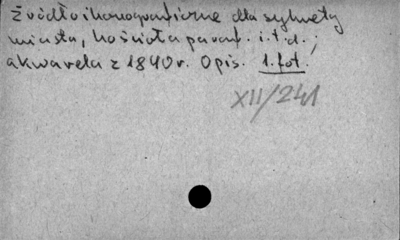 Źródło ikonograficzne dla sylwety
miasta, kościoła paraf. i.t.d.;
akwarela z 1840 r. Opis. 1. fot.
XII/241